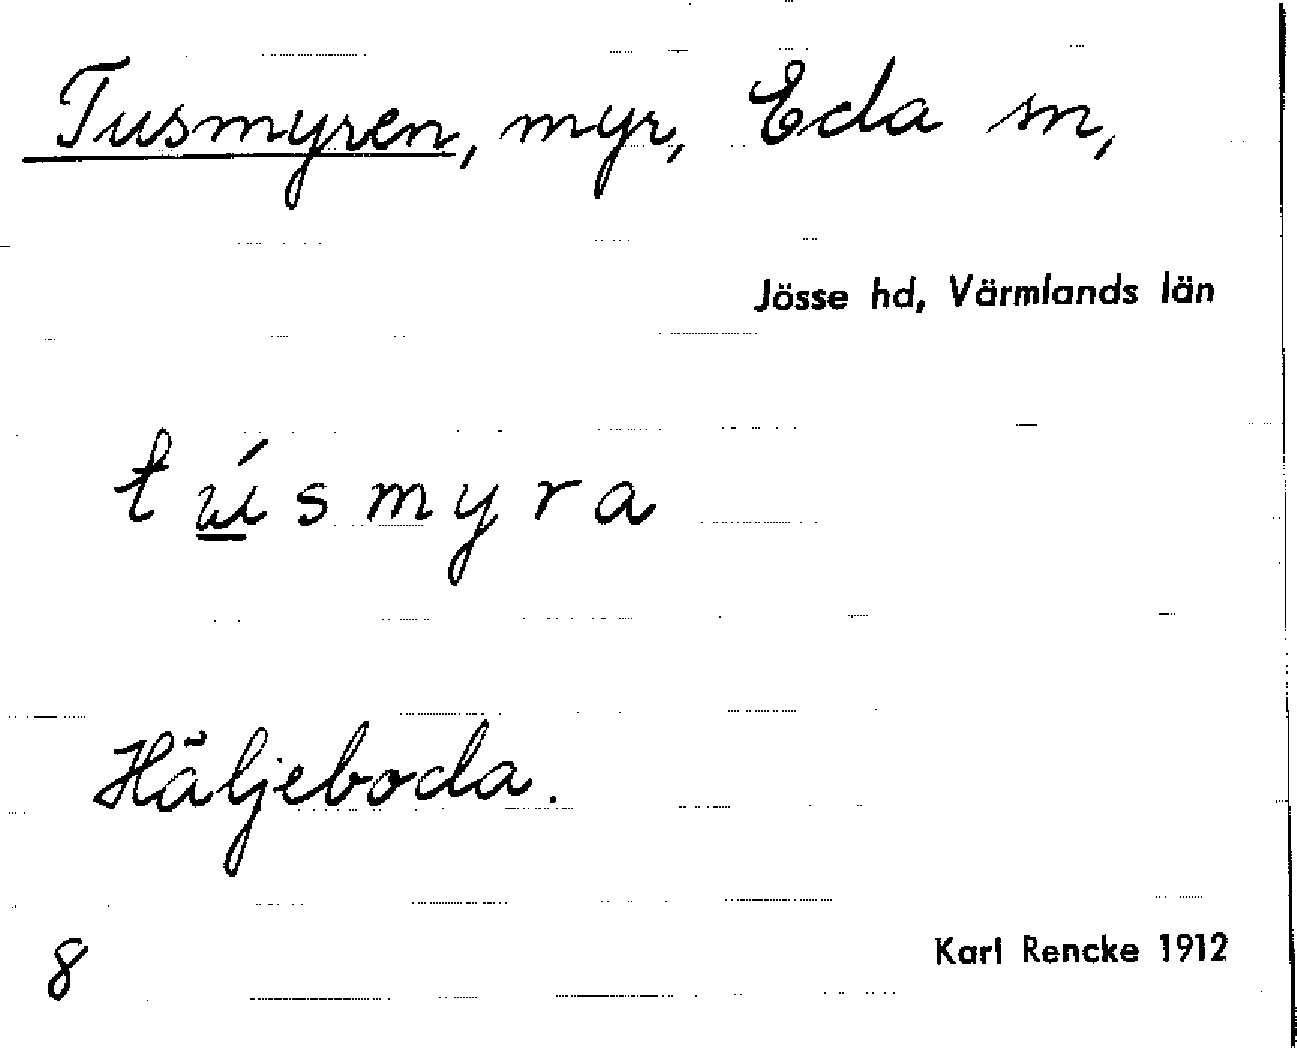 Tusmyren, myr, Eda sn,
Jösse hd, Värmlands län
tú̲smyra
Häljeboda.
8
Karl Rencke 1912